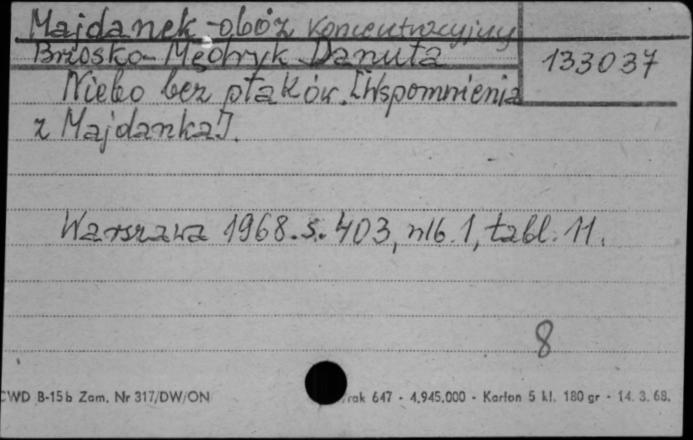 Majdanek - obóz koncentracyjny
Brzosko-Mędryk Danuta
133037
Niebo bez ptaków. [Wspomnienia
z Majdanka].
Warszawa 1968. s. 403, nlb. 1, tabl. 11.
8
CWD B-15b Zam. Nr 317/DW/ON
rak 647 - 4.945.000 - Karton 5 kl. 180 gr - 14. 3. 68.